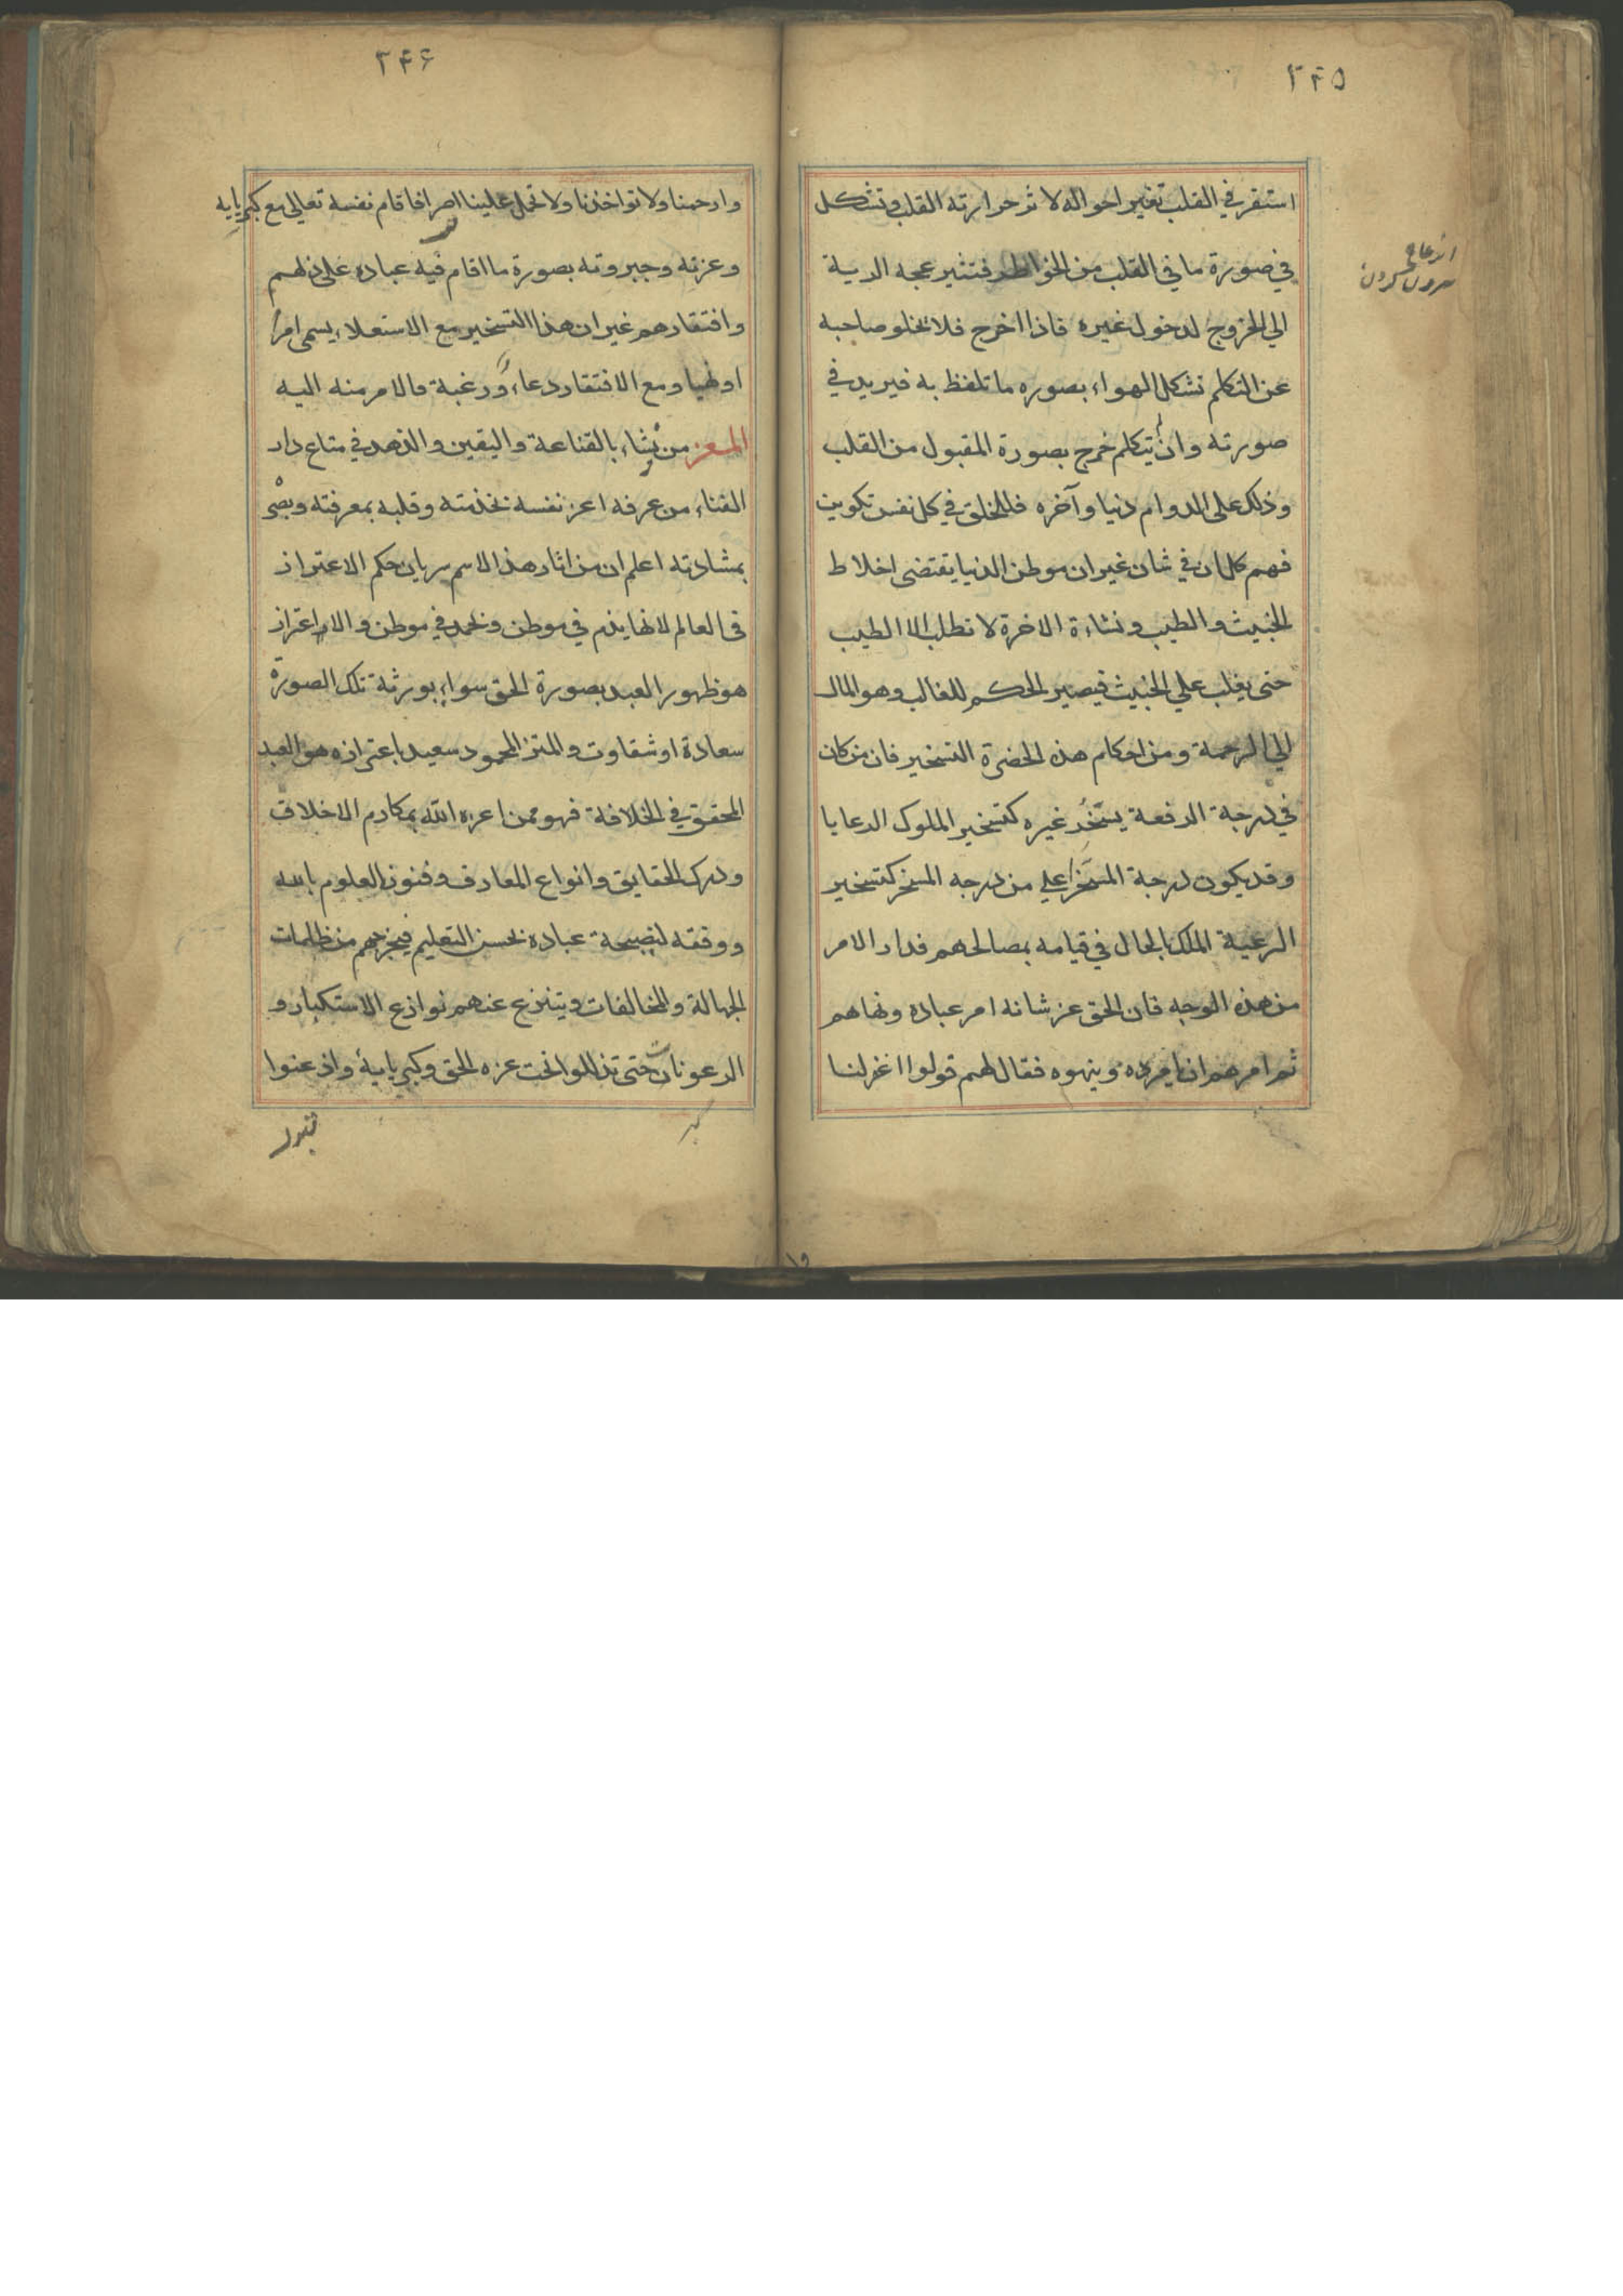 ۲۴۵
استقر في القلب تغير احواله لا ثر حرارته القلب وتشكل
في صورة ما في القلب من الخواطر فتثير عجه الرية
الي الخروج لدخول غيره فاذا اخرج فلا تخلو صاحبه
عن التكلم تشكل الهواء بصوره ما تلفظ به فيريد في
صورته وان لم يتكلم خرج بصورة المقبول من القلب
وذلك على الدوام دنيا وآخره فللخلق في كل نفس تكوين
فهم كل ان في شان غير ان موطن الدنيا يقتضى اخلاط
الخبيث والطيب ونشاءة الاخرة لا تطلب الا الطيب
حتى يغلب علي الخبيث فيصير الحكم للغالب وهو المال
الي الرحمة ومن احكام هذه الحضرة التسخير فان من كان
في درجة الرفعة يسخر غيره كتسخير الملوك الرعايا
وقد يكون درجة المسخر اعلي من درجه المسخر كتسخير
الرعية الملك بالحال في قيامه بمصالحهم فدار الامر
من هذه الوجه فان الحق عز شانه امر عباده ونهاهم
ثم امرهم ان يامروه وينهوه فقال لهم قولوا اغفر لنا
ازعاج
بيرون كردن
۲۴۶
وارحمنا ولا تواخذنا ولا تحمل علينا اصرا فاقام نفسه تعالي مع كبريايه
وعزته وجبروته بصورة ما اقام فيه عباده على ذلهم
وافتقارهم غير ان هذا التسخير مع الاستعلاء يسمى امرا
او نهيا ومع الافتقار دعاء ورغبة فالامر منه اليه
المعز من يشاء بالقناعة واليقين والزهد في متاع دار
الفناء من عرفه اعز نفسه بخدمته وقلبه بمعرفته وبصره
بمشادته اعلم ان من اثار هذا الاسم سريان حكم الاعتزاز
فى العالم لانها يذم في موطن وتحمد في موطن والاعتزاز
هو ظهور العبد بصورة الحق سواء يورثه تلك الصورة
سعادة او شقاوت والمتز المحمود سعيد باعتزازه هو العبد
المحقق في الخلافة فهو ممن اعزه الله بمكارم الاخلاق
ودرك الحقايق وانواع المعارف وفنون العلوم بالله
ووفقه لنصيحة عباده بحسن التعليم فيخرجهم من ظلمات
الجهالة والمخالفات وينزع عنهم نوازع الاستكبار و
الرعونات حتى تذللوا تحت عزه الحق وكبريايه واذعنوا